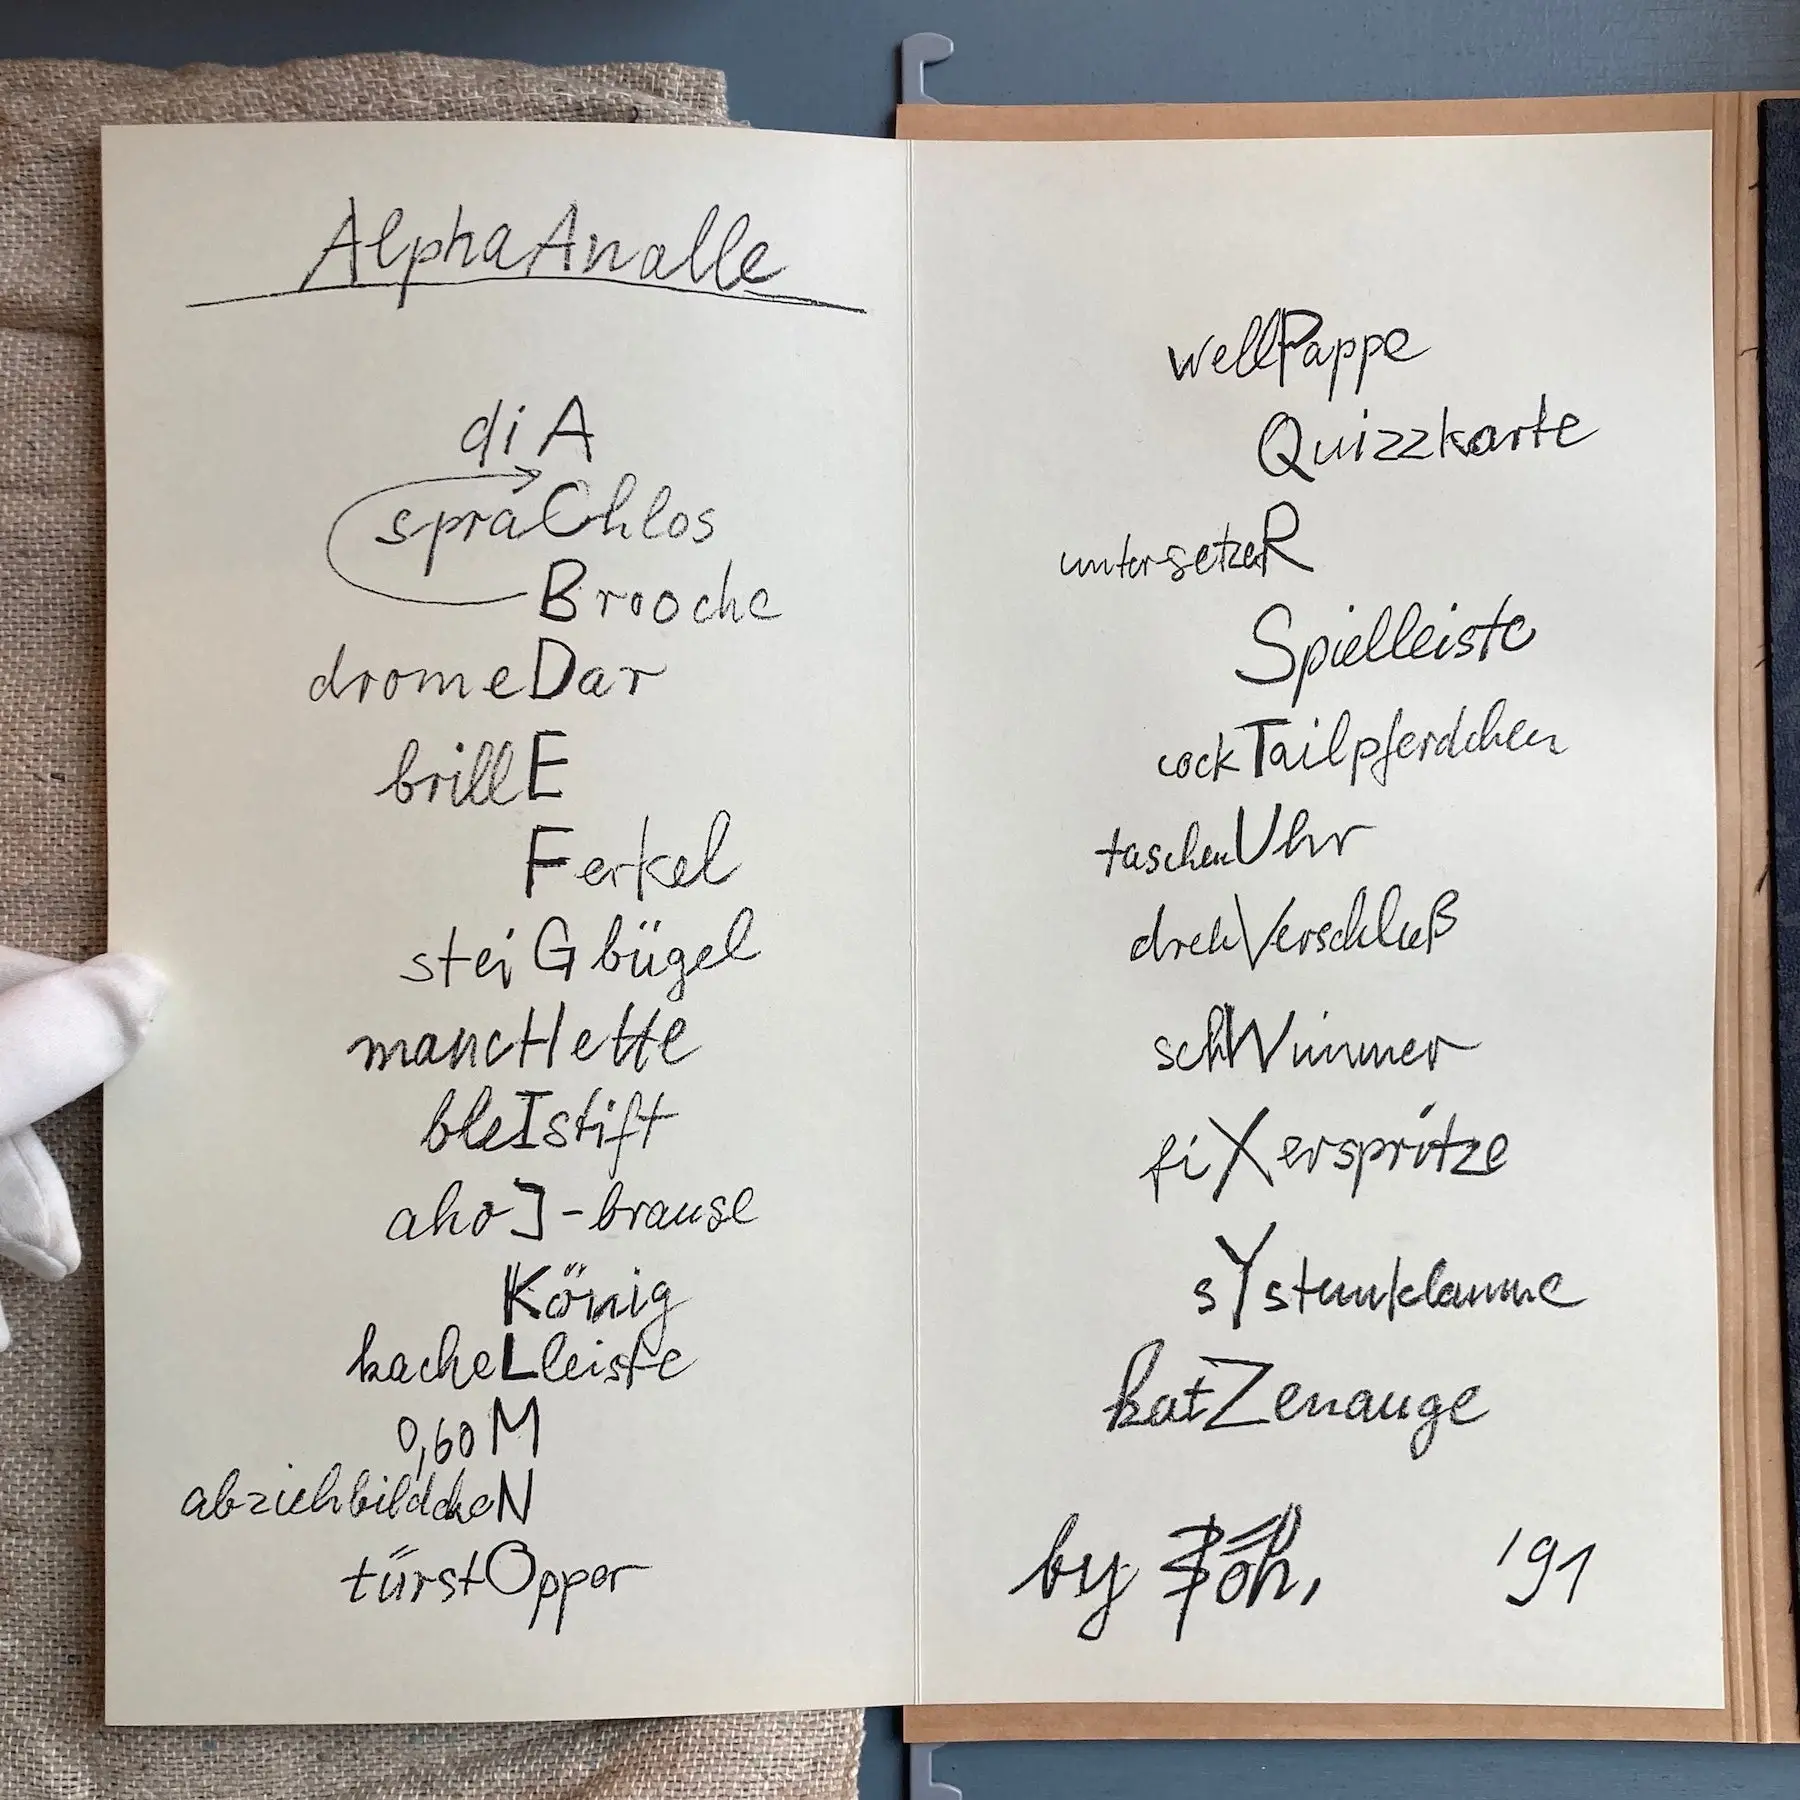 AlphaAnalle
diA
spraChlos
Brooche
dromeDar
brillE
Ferkel
steiGbügel
mancHette
bleIstift
ahoJ-brause
König
kacheLleiste
0,60 M
abziehbildcheN
türstOpper
wellPappe
Quizzkarte
untersetzeR
Spielleiste
cockTailpferdchen
taschenUhr
drehVerschluß
schWimmer
fiXerspritze
sYstemklamme
katZenauge
by 
'91